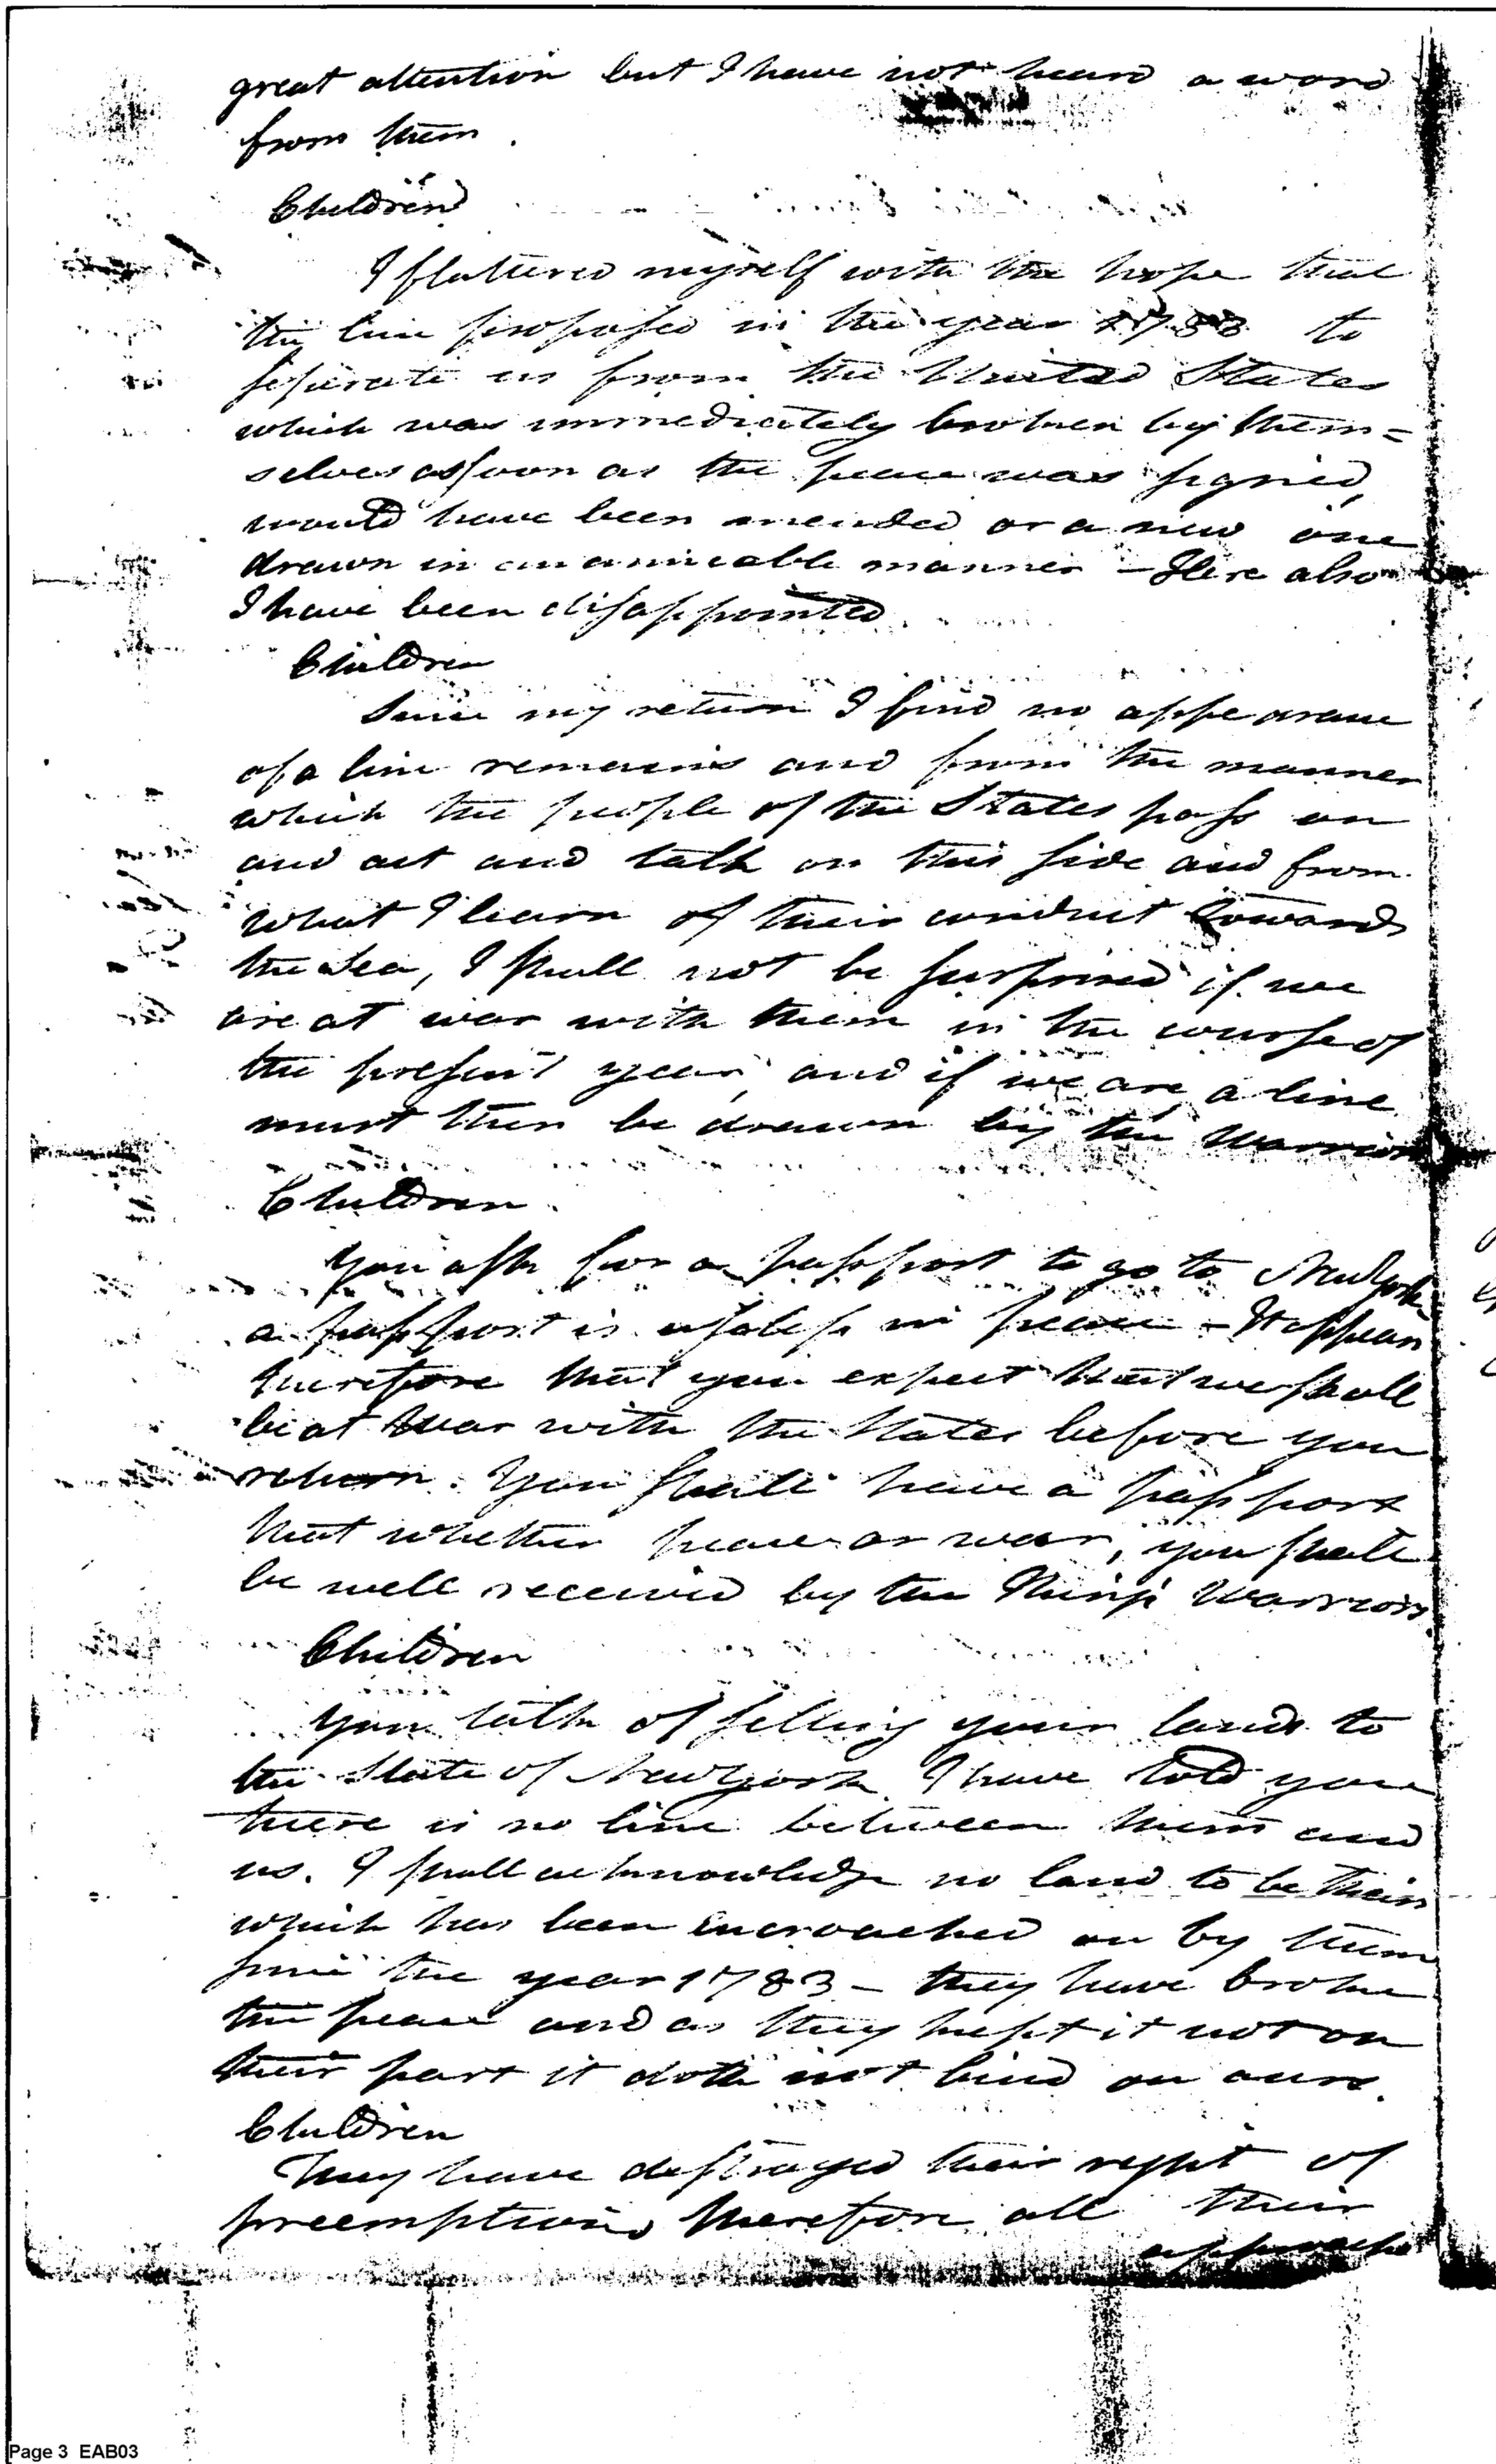 great attention but I have not heard a word
from them.
Children
I flattered myself with the hope that
the line proposed in the year 1783 to
seperate us from the United States
which was immediately broken by them=
selves as soon as the peace was signed,
would have been mended or a new one
drawn in an amicable manner – Here also
I have been disappointed.
Children
Since my return I find no appearance
of a line remains and from the manner
which the people of the States pass on
and act and talk on this side and from
what I learn of their conduct towards
the Sea, I shall not be surprised if we
are at war with them in the course of
the present year, and if we are, a line
must then be drawn by the Warriors
Children.
You ask for a passport to go to New York
a passport is useless in peace – It appears
therefore that you expect that we shall
be at war with the States before you
return. You shall have a passport
that whether peace or war, you shall
be well received by the King's Warriors.
Children
You talk of selling your lands to
the State of New York I have told you
there is no line between them and
us. I shall acknowledge no land to be theirs
which has been encroached on by them
since the year 1783 – they have broke
the peace and as they kept it not on
their part it doth not bind on ours.
Children
They have destroyed their right of
preemption, therefore all their
approache
Page 3 EAB03